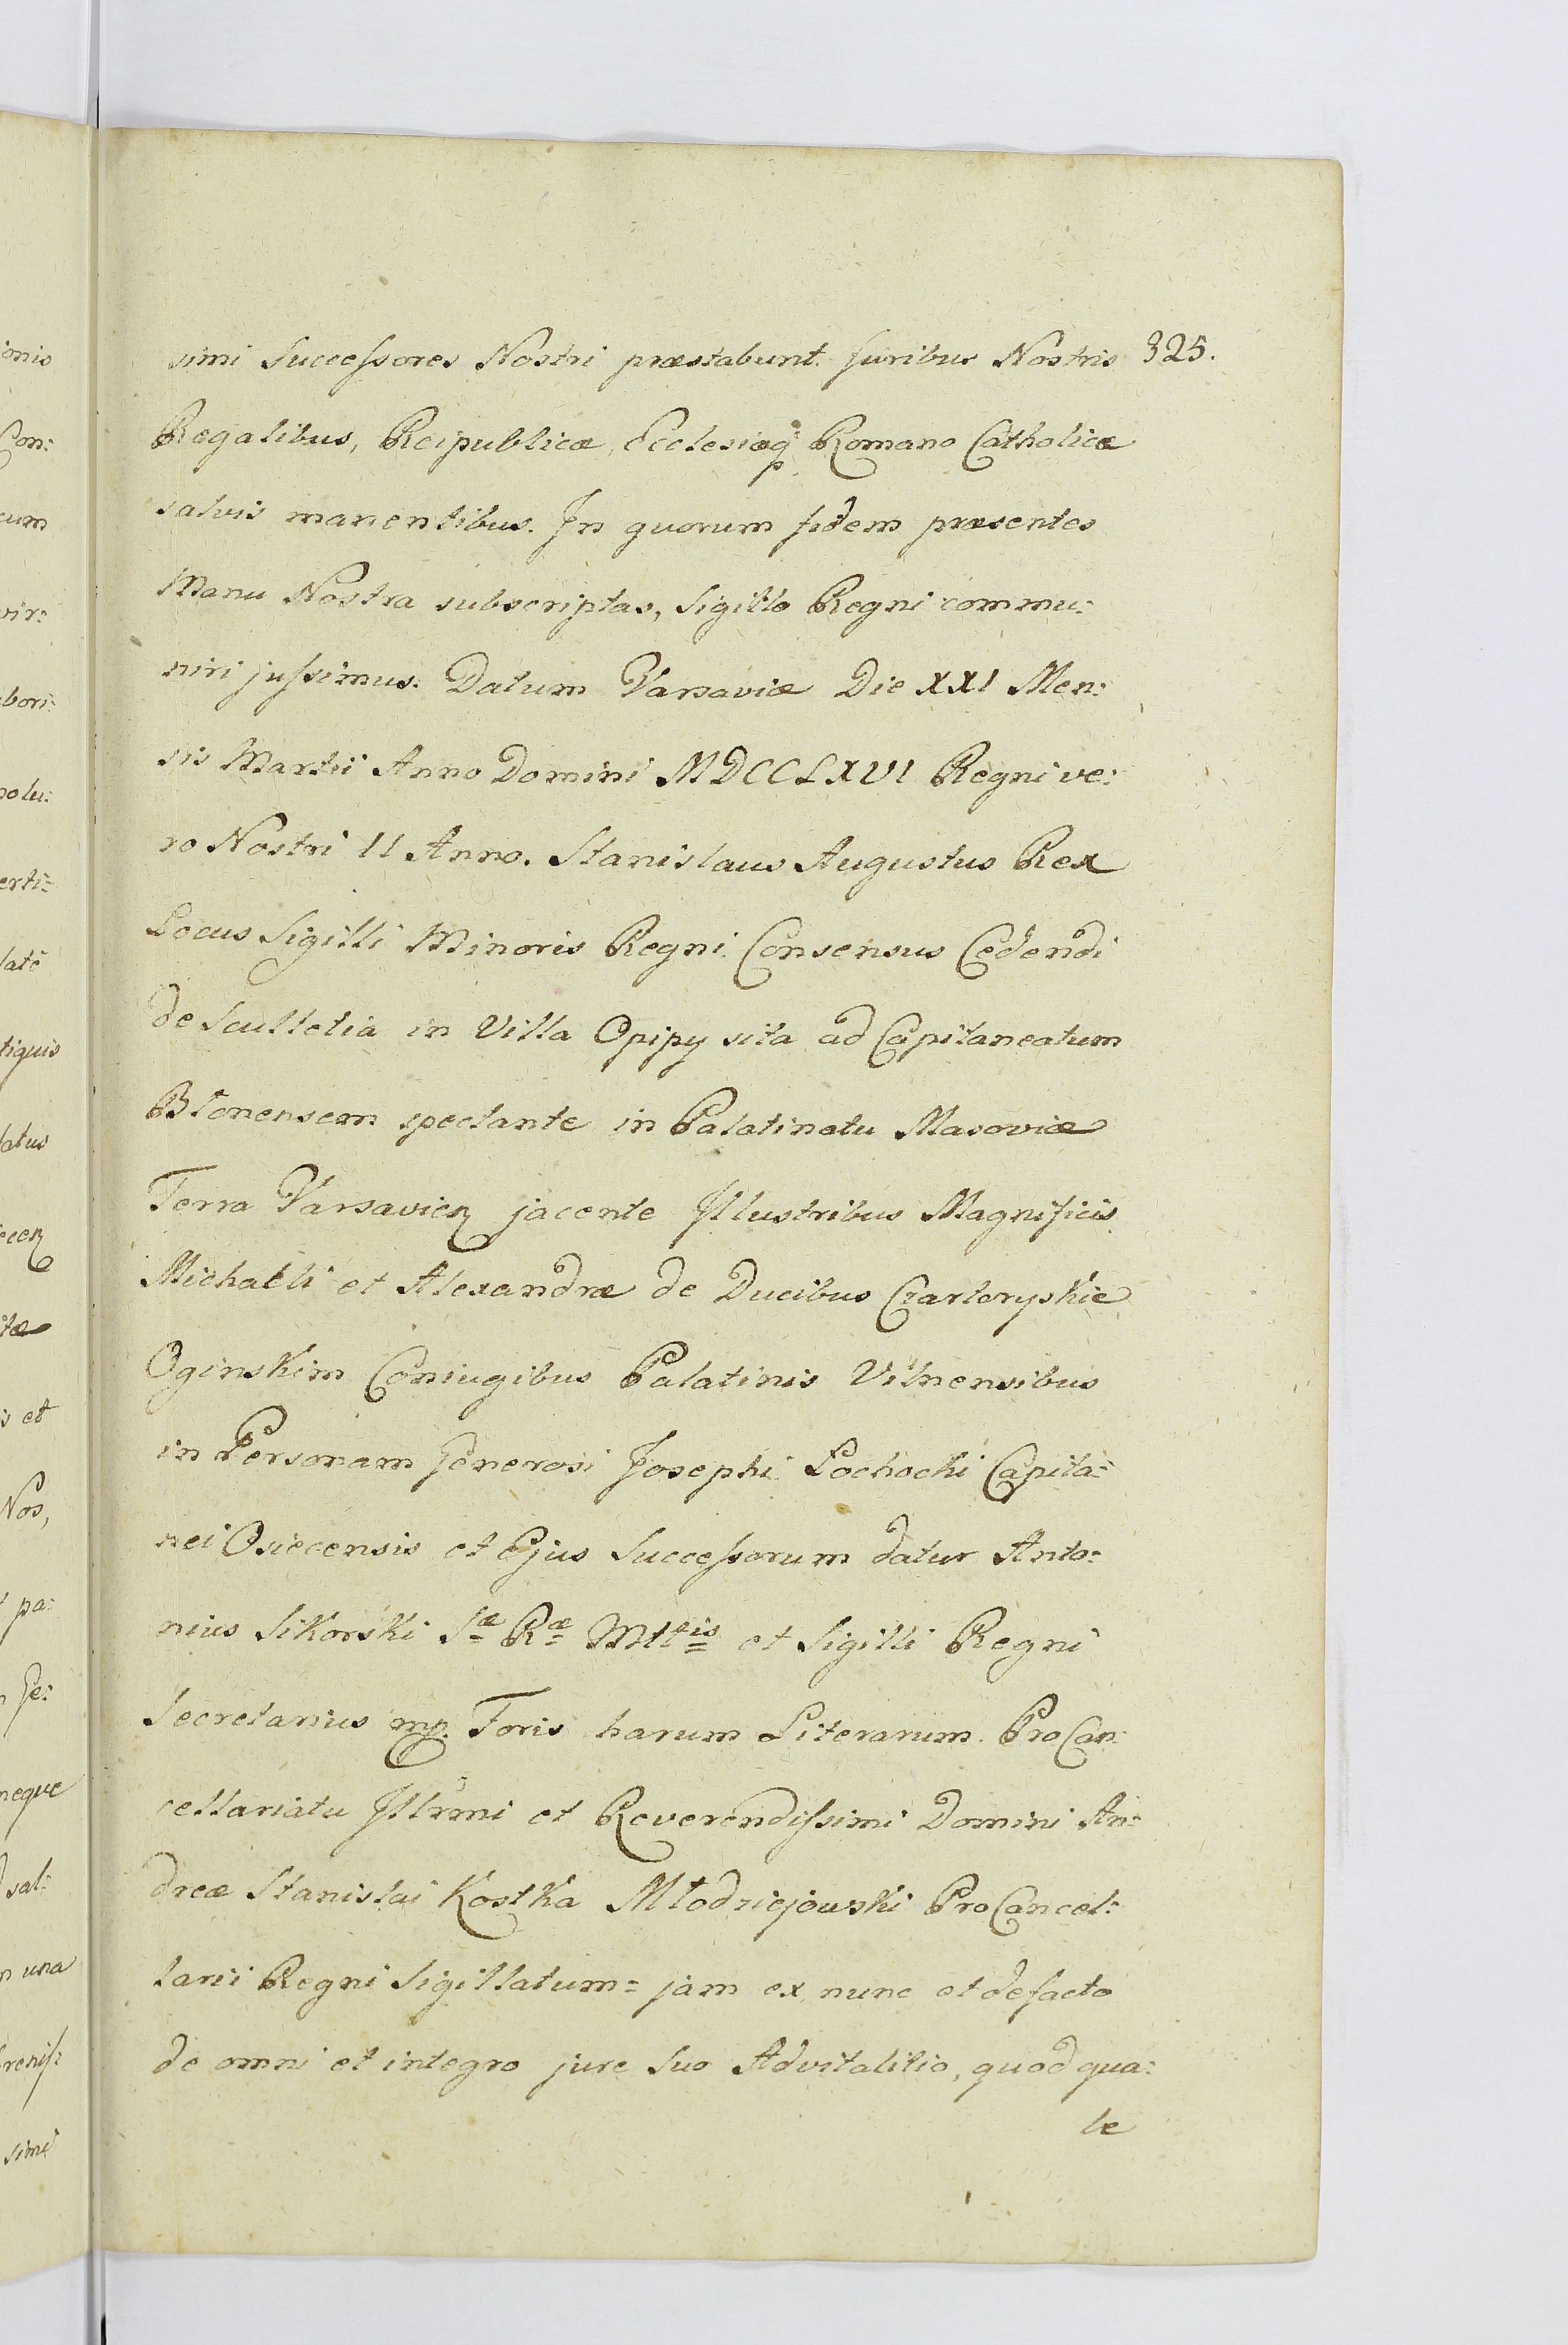 simi Successores Nostri præstabunt. Juribus Nostris 325.
Regalibus, Reipublicæ, Ecclesiæq Romano Catholicæ
salvis manentibus. In quorum fidem præsentes
Manu Nostra subscriptas, Sigillo Regni commu:
niri jussimus. Datum Varsaviæ Die XXI Men:
sis Martii Anno Domini MDCCLXVI Regni ve:
ro Nostri II Anno. Stanislaus Augustus Rex
Locus Sigilli Minoris Regni. Consensus Cedendi
de Scultetia in Villa Opipy sita ad Capitaneatum
Blonensem spectante in Palatinatu Masoviæ
Terra Varsavien jacente Illustribus Magnificis
Michaeli et Alexandræ de Ducibus Czartoryskie
Oginskim Coniugibus Palatinis Vilnensibus
in Personam Generosi Josephi Lochocki Capita:
nei Osiecensis et Ejus Successorum datur Anto:
nius Sikorski Sæ Ræ Mttis et Sigilli Regni
Secretarius mp. Foris harum Literarum. ProCan:
cellariatu Illrmi et Reverendissimi Domini An:
dreæ Stanislai Kostka Młodziejowski ProCancel:
larii Regni Sigillatum = jam ex nunc et defacto
de omni et integro jure Suo Advitalitio, quod qua:
le
ionis
Con:
cum
vir:
bori:
nolu:
erti:
latè
tiquis
latus
itæ
is et
Nos,
pa:
Ge:
neque
sal:
n una
renis:
simi